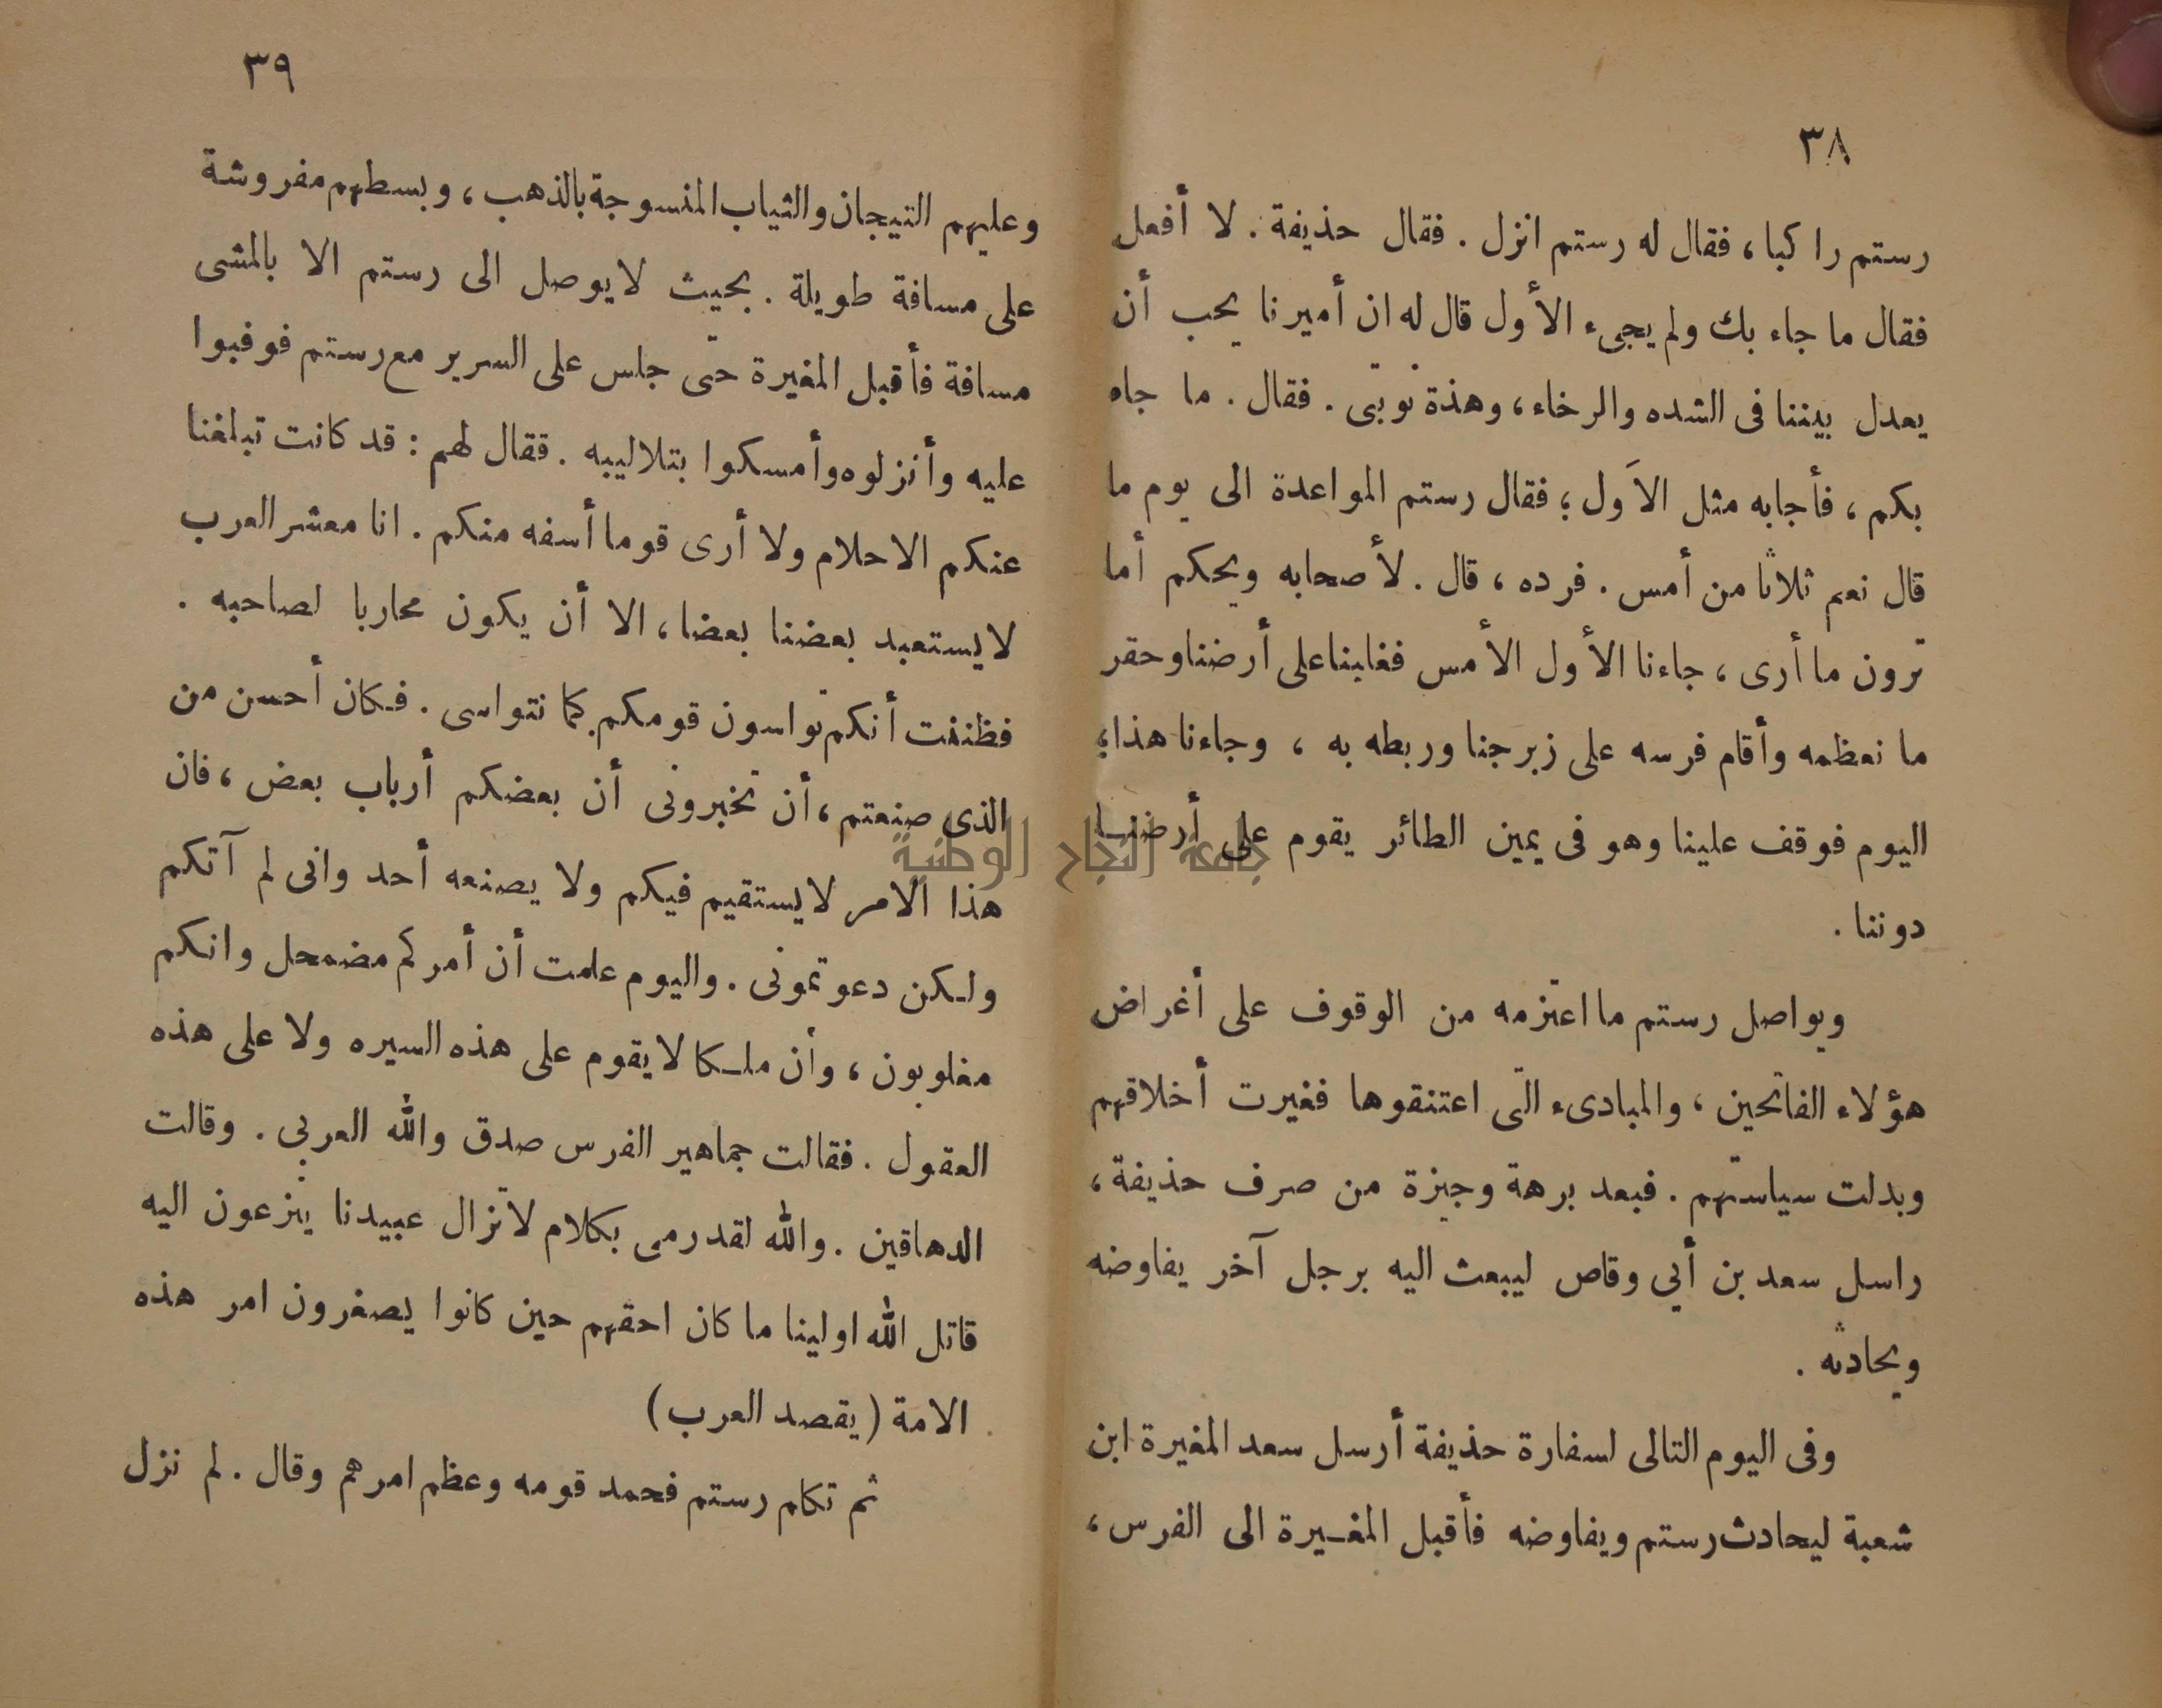 ٣٨
رستم راكبا، فقال له رستم انزل . فقال حذيفة . لا أفعل
فقال ما جاء بك ولم يجىء الأول قال له ان أميرنا يحب أن
يعدل بيننا فى الشده والرخاء، وهذة نوبتى . فقال . ما جاء
بكم ، فأجابه مثل الأول ؛ فقال رستم المواعدة الى يوم ما
قال نعم ثلاثا من أمس . فرده ، قال . لأصحابه ويحكم أما
ترون ما أرى ، جاءنا الأول الأمس فغلبنا على أرضنا وحقر
ما نعظمه وأقام فرسه على زبرجنا وربطه به ، وجاءنا هذا؛
اليوم فوقف علينا وهو فى يمين الطائر يقوم على أرضنا
دوننا .
ويواصل رستم ما اعتزمه من الوقوف على أغراض
هؤلاء الفاتحين ، والمبادىء التى اعتنقوها فغيرت أخلاقهم
وبدلت سياستهم . فبعد برهة وجيزة من صرف حذيفة ،
راسل سعد بن أبي وقاص ليبعث اليه برجل آخر يفاوضه
ويحادثه .
وفى اليوم التالى لسفارة حذيفة أرسل سعد المغيرة ابن
شعبة ليحادث رستم ويفاوضه فأقبل المغيرة الى الفرس ،
٣٩
وعليهم التيجان والثياب المنسوجة بالذهب ، وبسطهم مفروشة
على مسافة طويلة . بحيث لا يوصل الى رستم الا بالمشى
مسافة فأقبل المغيرة حتى جلس على السرير مع رستم فوفبوا
عليه وأنزلوه وأمسكوا بتلاليبه . فقال لهم : قد كانت تبلغنا
عنكم الاحلام ولا أرى قوما أسفه منكم . انا معشر العرب
لا يستعبد بعضنا بعضا ، الا أن يكون محاربا لصاحبه .
فظننت أنكم تواسون قومكم كما نتواسى . فكان أحسن من
الذى صنعتم ، أن تخبرونى أن بعضكم أرباب بعض ، فان
هذا الامر لا يستقيم فيكم ولا يصنعه أحد وانى لم آتكم
ولكن دعوتمونى . واليوم علمت أن أمركم مضمحل وانكم
مغلوبون ، وأن ملكا لا يقوم على هذه السيره ولا على هذه
العقول . فقالت جماهير الفرس صدق والله العربي . وقالت
الدهاقين . والله لقد رمى بكلام لا تزال عبيدنا ينزعون اليه
قاتل الله اولينا ما كان احقهم حين كانوا يصغرون امر هذه
الامة (يقصد العرب)
ثم تكلم رستم فحمد قومه وعظم امرهم وقال . لم نزل
جامعة النجاح الوطنية